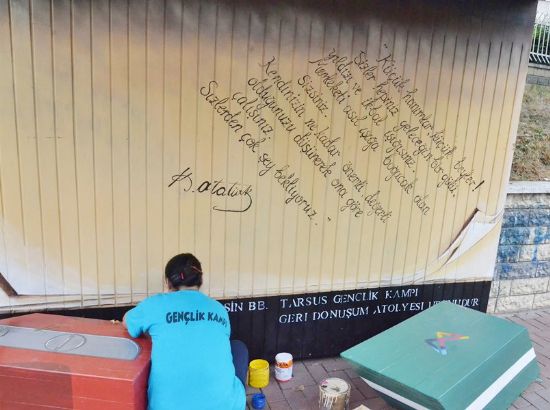 "Küçük hanımlar, küçük beyler!
Sizler hepiniz geleceğin bir gülü,
yıldızı ve ikbal ışığısınız.
Memleketi asıl ışığa boğacak olan
sizsiniz.
Kendinizin ne kadar önemli, değerli
olduğunuzu düşünerek ona göre
çalışınız.
Sizlerden çok şey bekliyoruz."
K. atatürk
SİN BB. TARSUS GENÇLİK KAMPI
GERİ DÖNÜŞÜM ATOLYESİ
GENÇLİK KAMPI